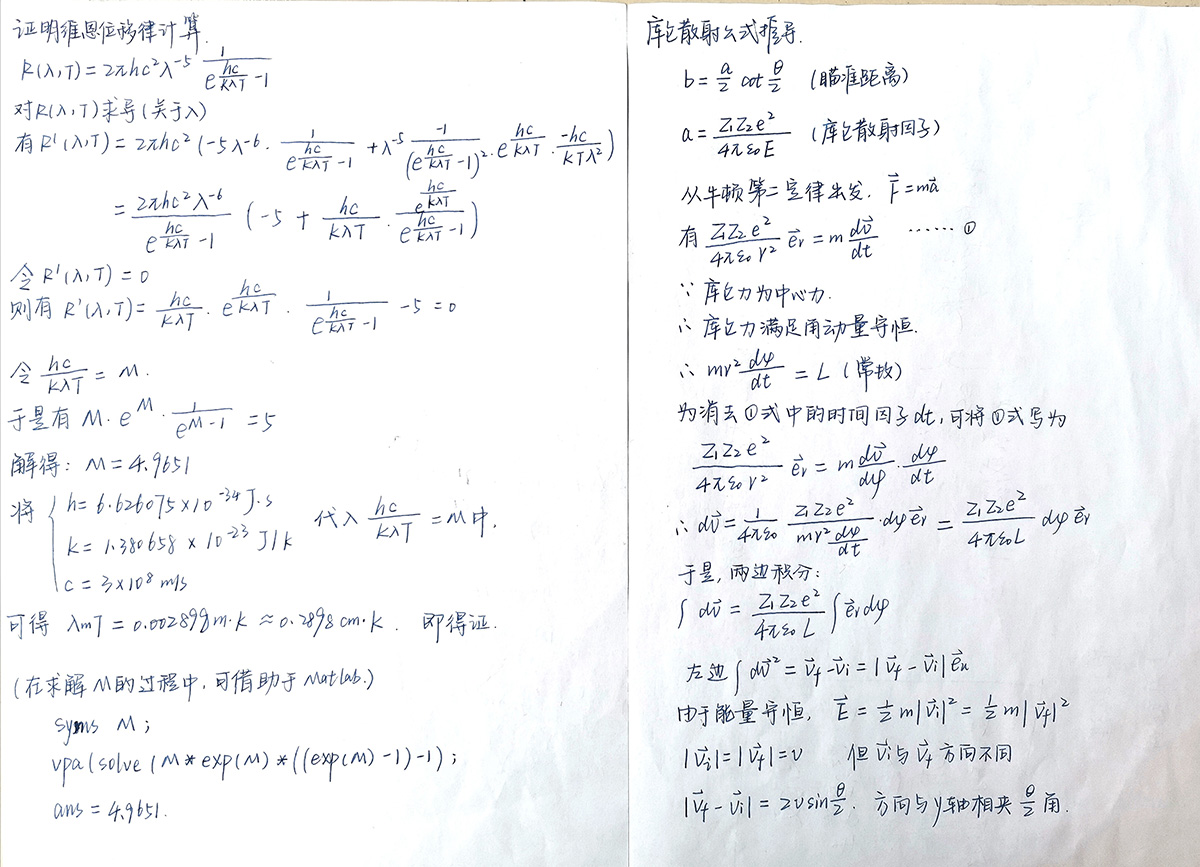 证明维恩位移律计算.
R(λ,T) = 2πhc²λ⁻⁵ 1/(e^(hc/kλT) - 1)
对R(λ,T)求导(关于λ)
有 R'(λ,T) = 2πhc² (-5λ⁻⁶ · 1/(e^(hc/kλT) - 1) + λ⁻⁵ -1/(e^(hc/kλT) - 1)² · e^(hc/kλT) · -hc/(kTλ²))
= 2πhc²λ⁻⁶/(e^(hc/kλT) - 1) (-5 + hc/kλT · e^(hc/kλT)/(e^(hc/kλT) - 1))
令 R'(λ,T) = 0
则有 R'(λ,T) = hc/kλT · e^(hc/kλT) · 1/(e^(hc/kλT) - 1) - 5 = 0
令 hc/kλT = M.
于是有 M · e^M · 1/(e^M - 1) = 5
解得: M = 4.9651
将 { h = 6.626075×10⁻³⁴ J·s
k = 1.380658 × 10⁻²³ J/k
c = 3×10⁸ m/s
代入 hc/kλT = M 中,
可得 λmT = 0.002898m·k ≈ 0.2898 cm·k. 即得证.
(在求解M的过程中,可借助于Matlab.)
syms M;
vpa(solve(M*exp(M)*((exp(M)-1)-1);
ans = 4.9651.
库仑散射公式推导.
b = a/2 cot θ/2 (瞄准距离)
a = Z₁Z₂e²/4πε₀E (库仑散射因子)
从牛顿第二定律出发. F⃗ = ma⃗
有 Z₁Z₂e²/4πε₀r² e⃗r = m dv⃗/dt ……①
∵ 库仑力为中心力.
∴ 库仑力满足角动量守恒.
∴ mr² dφ/dt = L (常数)
为消去①式中的时间因子dt,可将①式写为
Z₁Z₂e²/4πε₀r² e⃗r = m dv⃗/dφ · dφ/dt
∴ dv⃗ = 1/4πε₀ Z₁Z₂e²/(mr² dφ/dt) · dφ e⃗r = Z₁Z₂e²/4πε₀L dφ e⃗r
于是,两边积分:
∫ dv⃗ = Z₁Z₂e²/4πε₀L ∫ e⃗r dφ
左边 ∫ dv⃗² = v⃗f - v⃗i = |v⃗f - v⃗i| e⃗u
由于能量守恒, E⃗ = ½ m|v⃗i|² = ½ m|v⃗f|²
|v⃗i| = |v⃗f| = v 但 v⃗i 与 v⃗f 方向不同
|v⃗f - v⃗i| = 2v sin θ/2. 方向与y轴相夹 θ/2 角.